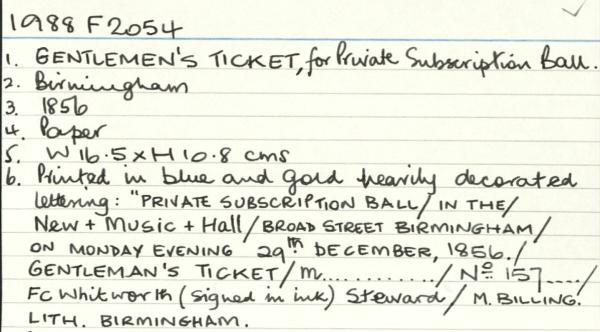 1988 F2054
1. GENTLEMEN'S TICKET, for Private Subscription Ball.
2. Birmingham
3. 1856
4. Paper
5. W 16.5 x H 10.8 cms
6. Printed in blue and gold heavily decorated
lettering: "PRIVATE SUBSCRIPTION BALL/ IN THE/
New + Music + Hall/ BROAD STREET BIRMINGHAM/
ON MONDAY EVENING 29th DECEMBER, 1856./
GENTLEMAN'S TICKET/ M............/ No 157..../
FC Whitworth (signed in ink) Steward/ M. BILLING.
LITH. BIRMINGHAM.